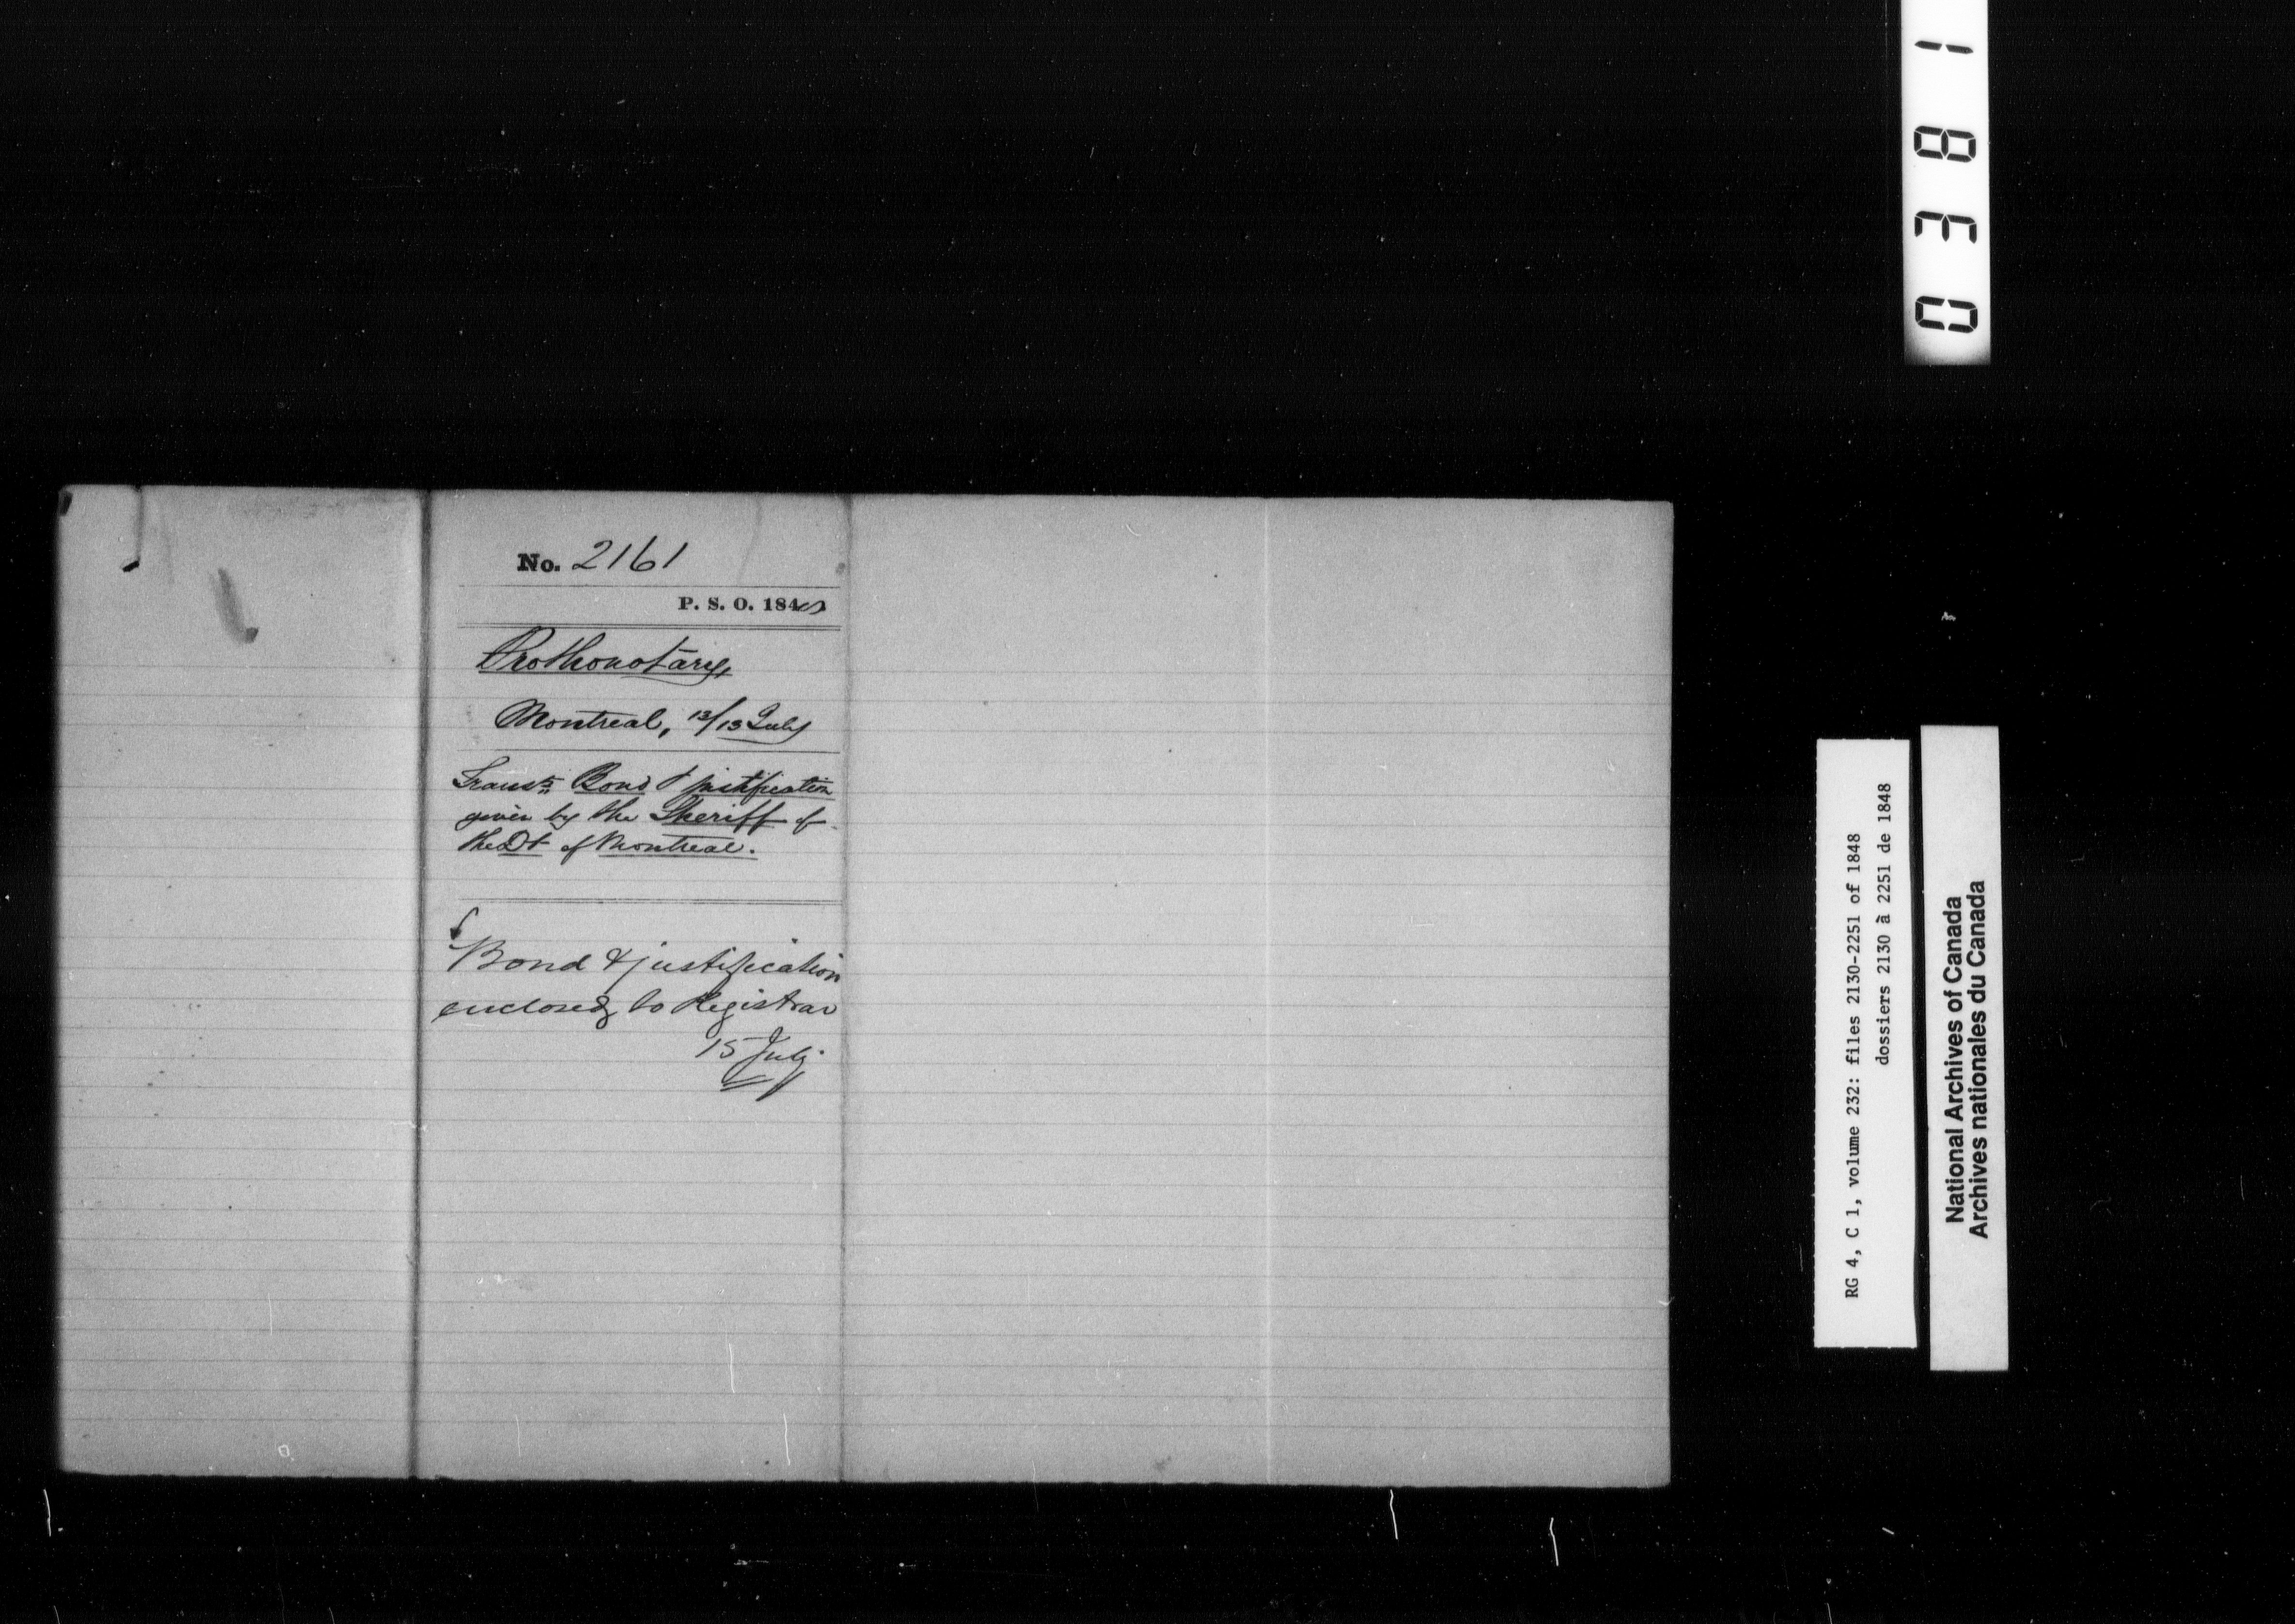 No. 2161
P. S. O. 1848
Prothonotary,
Montreal, 12/13 July
Transts Bond & justification
given by the Sheriff of
the Dt of Montreal.
Bond & justification
enclosed to Registrar
15 July
0381
RG 4, C 1, volume 232: files 2130-2251 of 1848
dossiers 2130 à 2251 de 1848
National Archives of Canada
Archives nationales du Canada